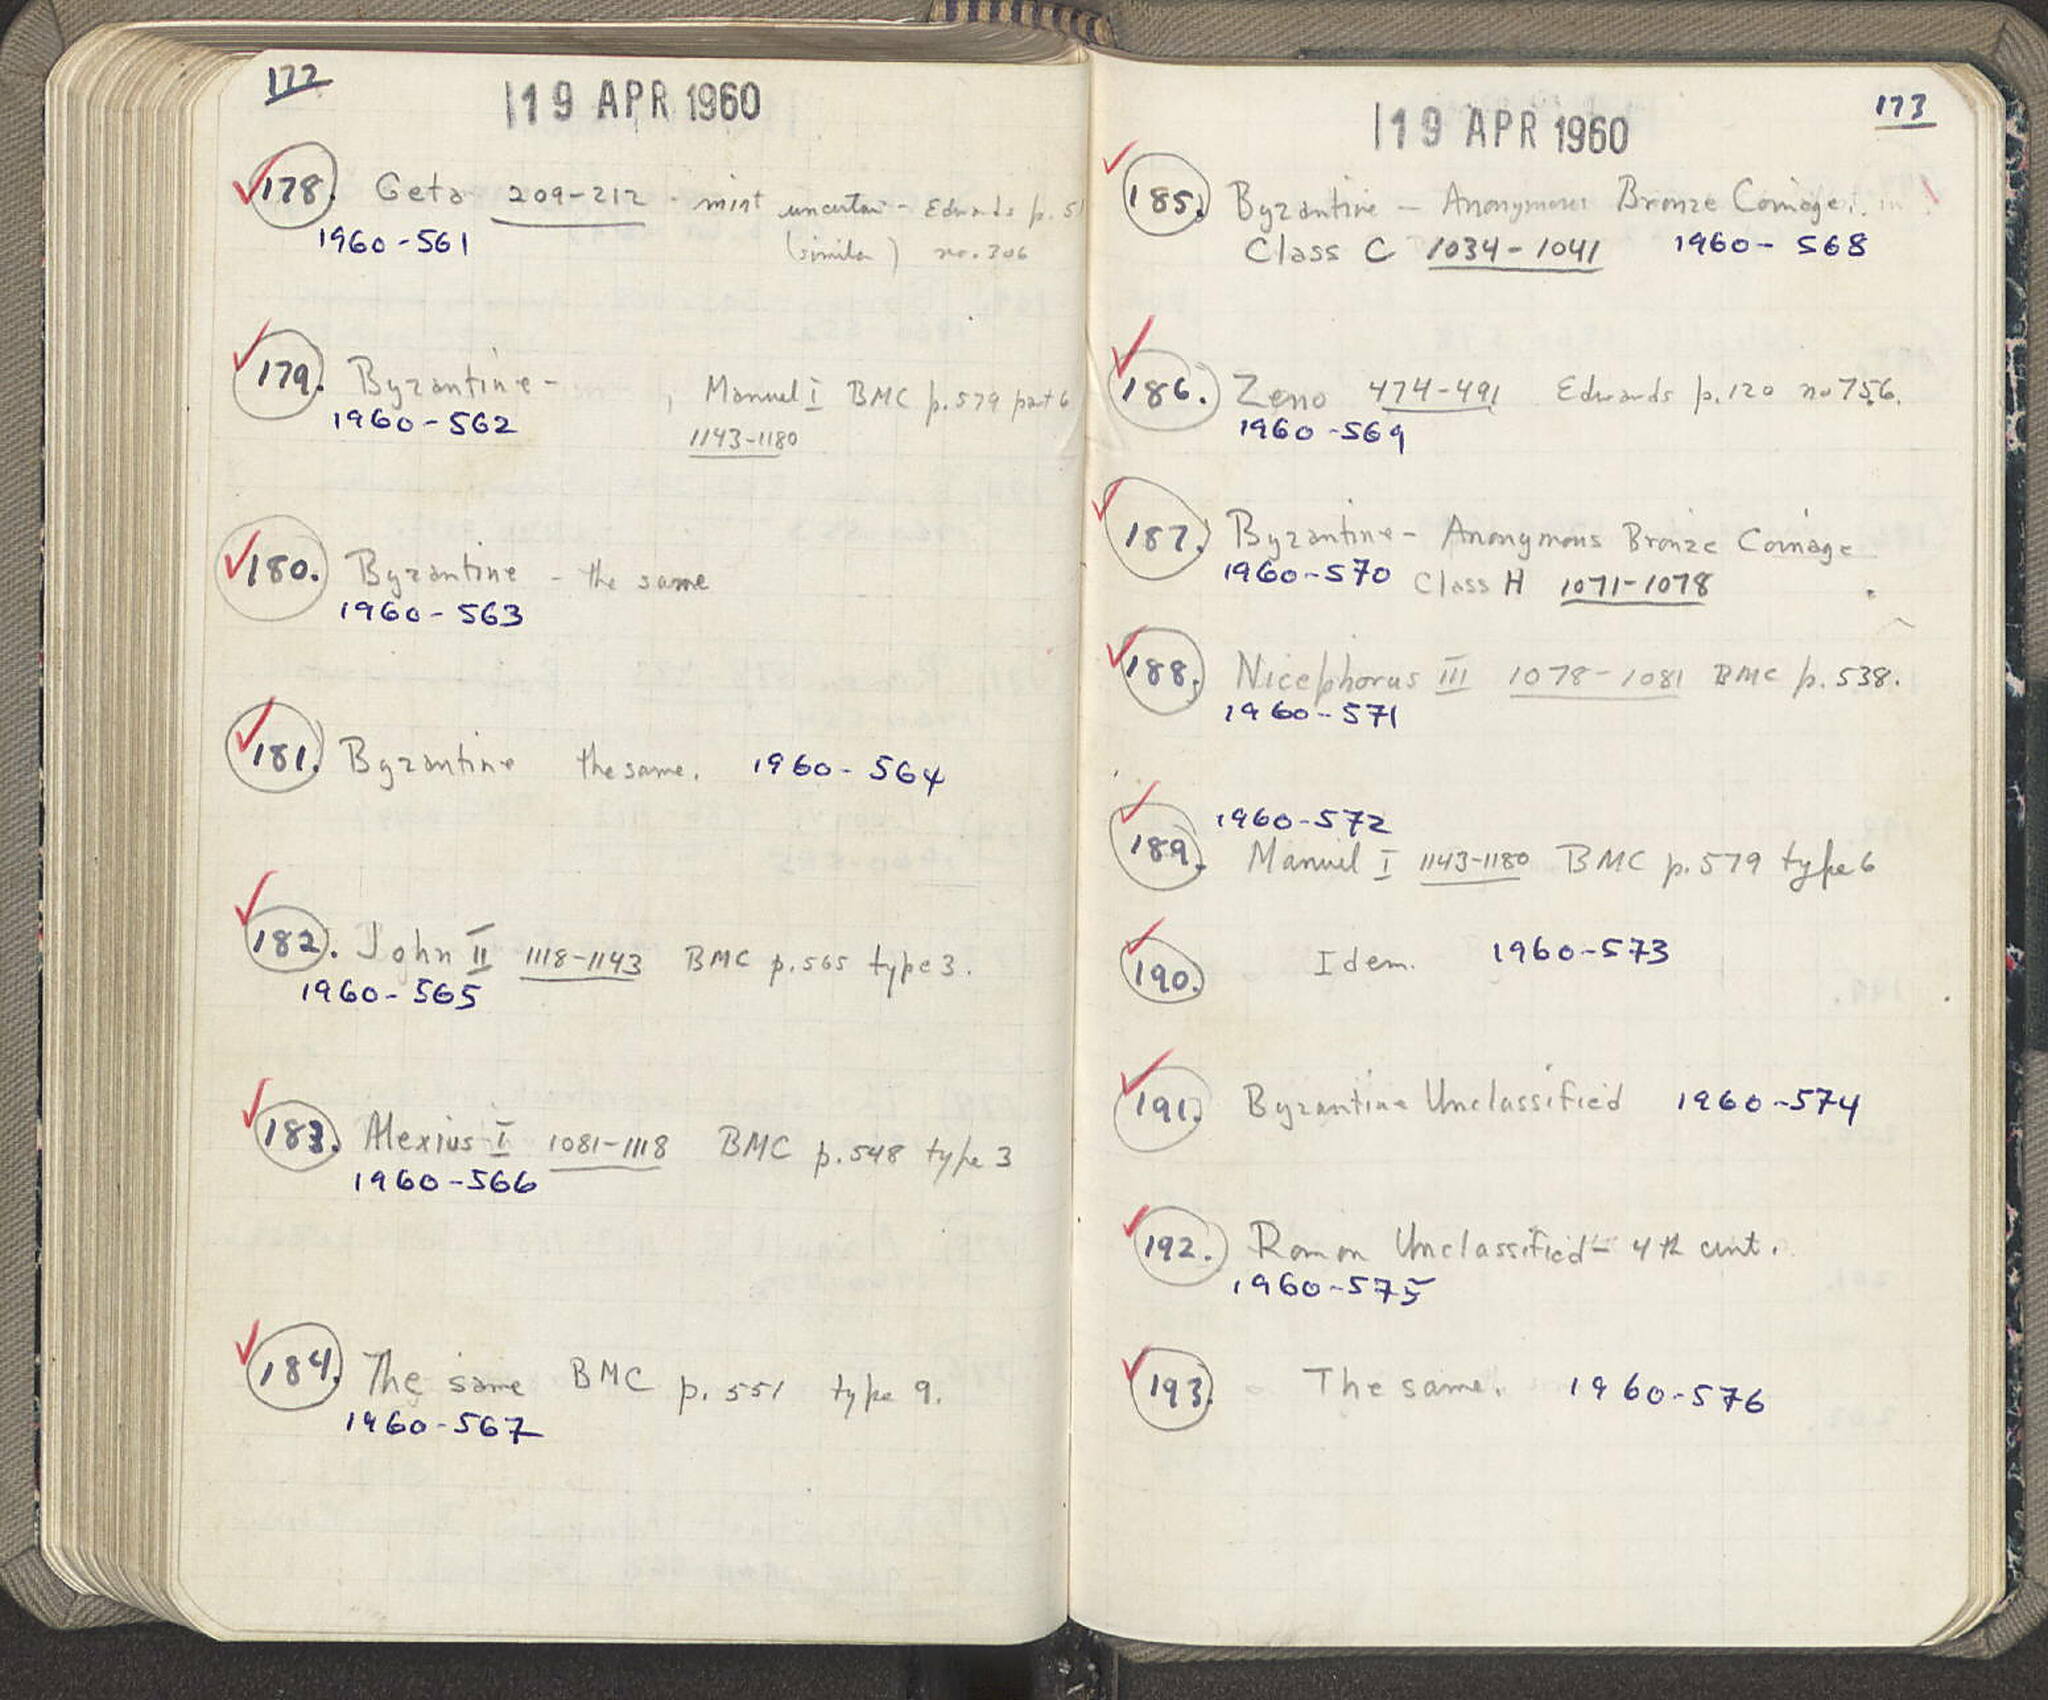 172
19 APR 1960
178. Geta 209-212 - mint uncertain - Edwards p. 51
1960-561 (similar) no. 306
179. Byzantine - , Manuel I BMC p. 579 part 6
1960-562 1143-1180
180. Byzantine - the same
1960-563
181. Byzantine the same. 1960-564
182. John II 1118-1143 BMC p. 565 type 3.
1960-565
183. Alexius I 1081-1118 BMC p. 548 type 3
1960-566
184. The same BMC p. 551 type 9.
1960-567
173
19 APR 1960
185. Byzantine - Anonymous Bronze Coinage.
Class C 1034-1041 1960-568
186. Zeno 474-491 Edwards p. 120 no 756.
1960-569
187. Byzantine - Anonymous Bronze Coinage
1960-570 Class H 1071-1078
188. Nicephorus III 1078-1081 BMC p. 538.
1960-571
1960-572
189. Manuel I 1143-1180 BMC p. 579 type 6
190. Idem. 1960-573
191. Byzantine Unclassified 1960-574
192. Roman Unclassified - 4th cent.
1960-575
193. The same. 1960-576